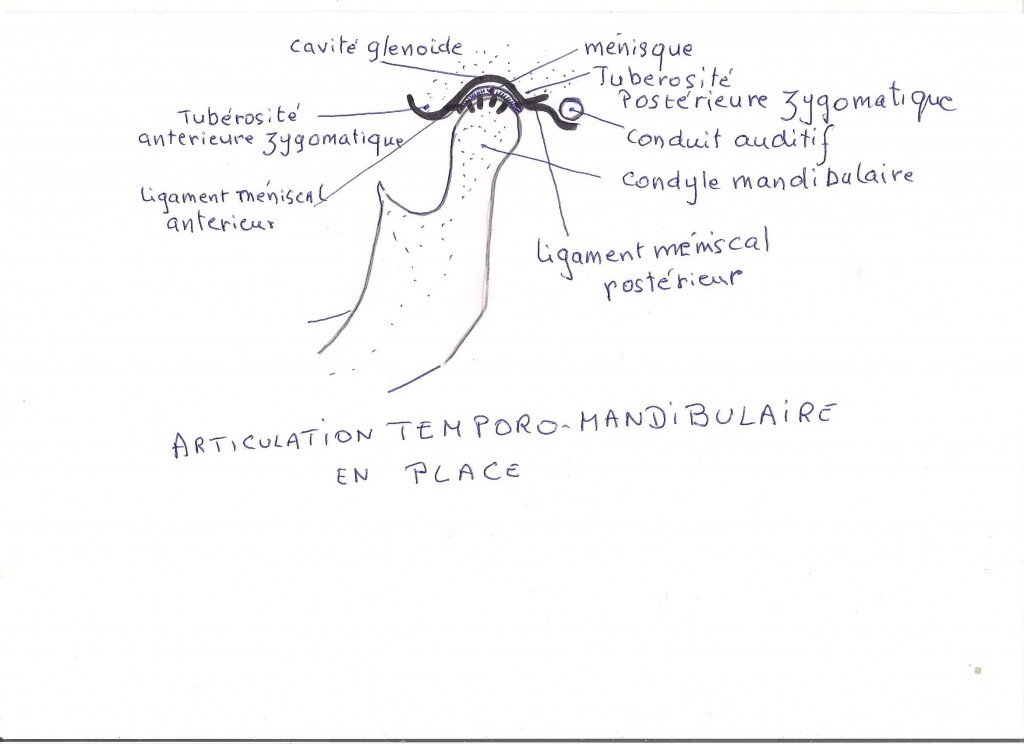 cavité glenoide
ménisque
Tuberosité
Postérieure zygomatique
Tubérosité
antérieure zygomatique
conduit auditif
condyle mandibulaire
Ligament méniscal
anterieur
Ligament méniscal
postérieur
ARTICULATION TEMPORO-MANDIBULAIRE
EN PLACE